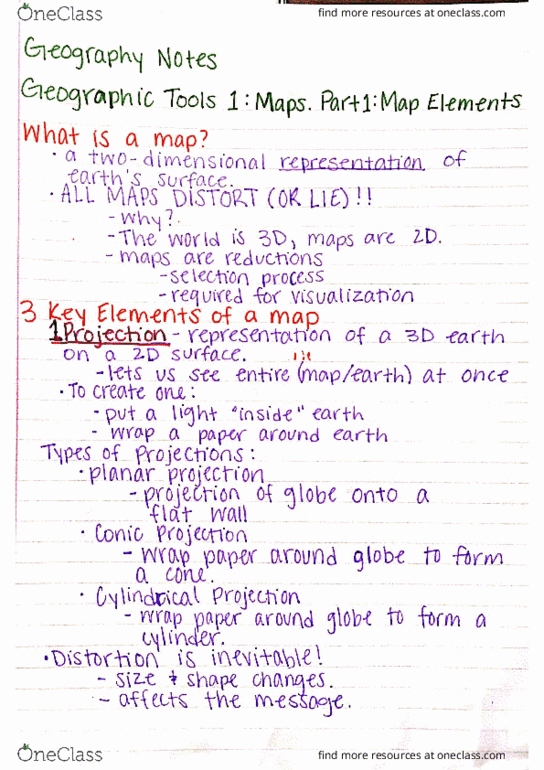 OneClass find more resources at oneclass.com
Geography Notes
Geographic Tools 1: Maps. Part1: Map Elements
What is a map?
· a two-dimensional representation of
earth's surface.
· ALL MAPS DISTORT (OR LIE)!!
- Why?
- The world is 3D, maps are 2D.
- maps are reductions
- selection process
- required for visualization
3 Key Elements of a map
1 Projection - representation of a 3D earth
on a 2D surface.
- lets us see entire (map/earth) at once
· To create one:
- put a light "inside" earth
- wrap a paper around earth
Types of Projections:
· planar projection
- projection of globe onto a
flat wall
· Conic Projection
- Wrap paper around globe to form
a cone.
· Cylindrical Projection
- wrap paper around globe to form a
cylinder.
· Distortion is inevitable!
- size & shape changes.
- affects the message.
OneClass find more resources at oneclass.com